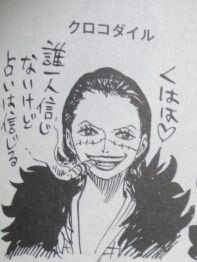 クロコダイル
くはは♡
誰一人信じ
ないけど
占いは信じる